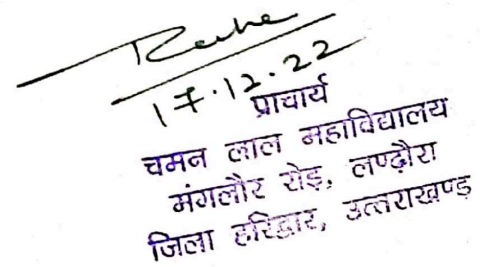 17.12.22
प्राचार्य
चमन लाल महाविद्यालय
मंगलौर रोड़, लण्ढौरा
जिला हरिद्वार, उत्तराखण्ड़